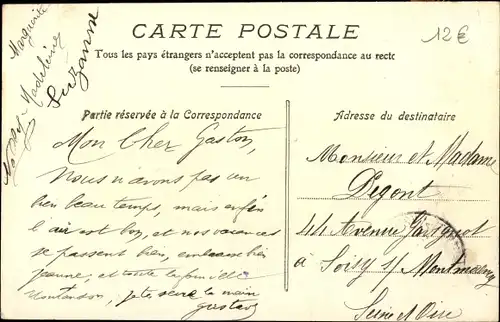 CARTE POSTALE
12€
Tous les pays étrangers n'acceptent pas la correspondance au recto
(se renseigner à la poste)
Marguerite
Madeleine
Suzanne
Partie réservée à la Correspondance
Mon Cher Gaston,
Nous n'avons pas un
bien beau temps, mais enfin
l'air est bon, et nos vacances
se passent bien, embrasse bien
Jeanne, et toute la famille
je te serre la main
Gustave
Adresse du destinataire
Monsieur et Madame
Degont
44 Avenue
à Soisy s/ Montmorency
Seine et Oise